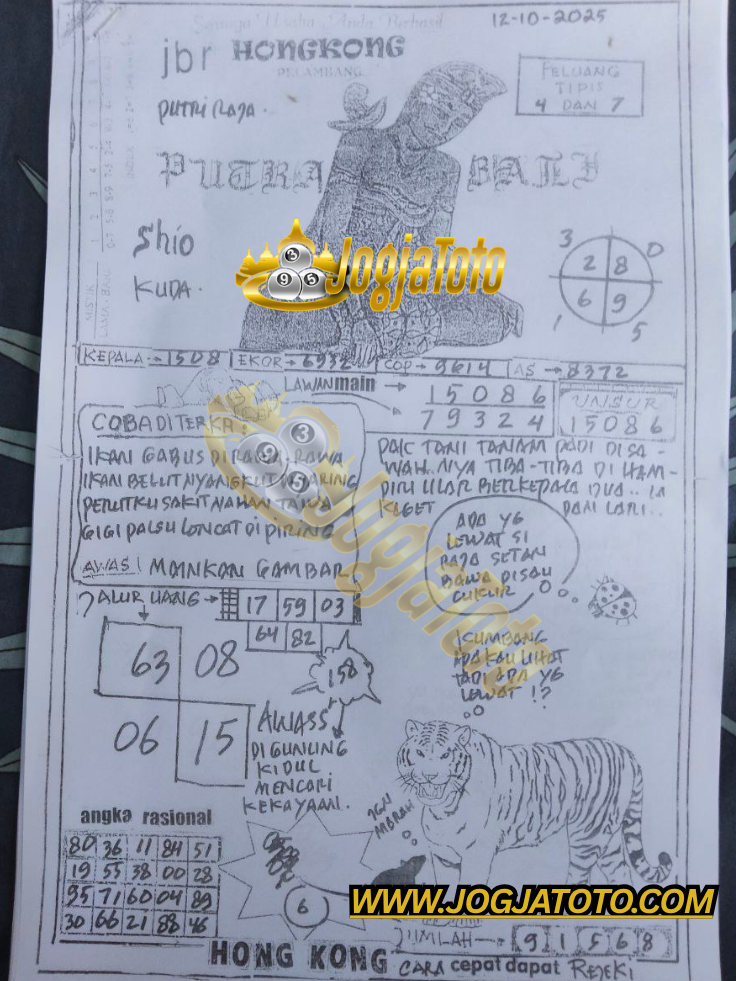 Semoga Usaha Anda Berhasil
12-10-2025
jbr HONGKONG
PELAMBANG
PELUANG
TIPIS
4 DAN 7
PUTRI RAJA.
PUTRA BALI
Shio
KUDA.
JogjaToto
3 0
2 8
6 9
1 5
KEPALA 1508 EKOR 6932 COP 9614 AS 8372
LAWAN main 15086
79324
UNSUR
15086
COBA DITERKA:
IKAN GABUS DI RAWA-RAWA
IKAN BELUT NYANGKUT DI JARING
PERUTKU SAKIT NAHAN TAWA
GIGI PALSU LONCAT DI PIRING
AWAS! MAINKAN GAMBAR
PAK TANI TANAM PADI DI SA-
WAH.NYA TIBA-TIBA DI HAM-
PIRI ULAR BERKEPALA DUA.. IA
KAGET DAN LARI..
ADA YG
LEWAT SI
RAJA SETAN
BAWA PISAU
CUKUR
JogjaToto
ALUR UANG 17 59 03
64 82
63 08
06 15
158
KUMBANG
APA KAU LIHAT
TADI ADA YG
LEWAT !?
AWASS
DI GUNUNG
KIDUL
MENCARI
KEKAYAAN.
JGN
MARAH
angka rasional
80 36 11 84 51
19 55 38 00 28
95 71 60 04 89
30 66 21 88 46
6
WWW.JOGJATOTO.COM
JUMLAH 9 1 5 6 8
HONG KONG CARA cepat dapat REJEKI